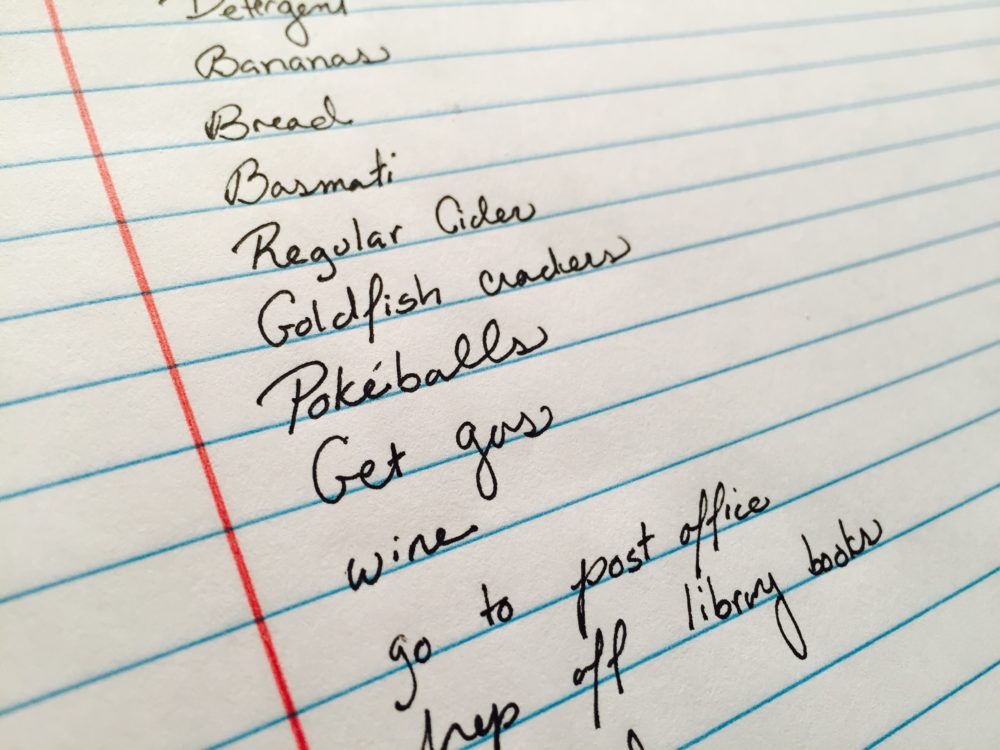 Detergent
Bananas
Bread
Basmati
Regular Cider
Goldfish crackers
Pokéballs
Get gas
wine
go to post office
drop off library books